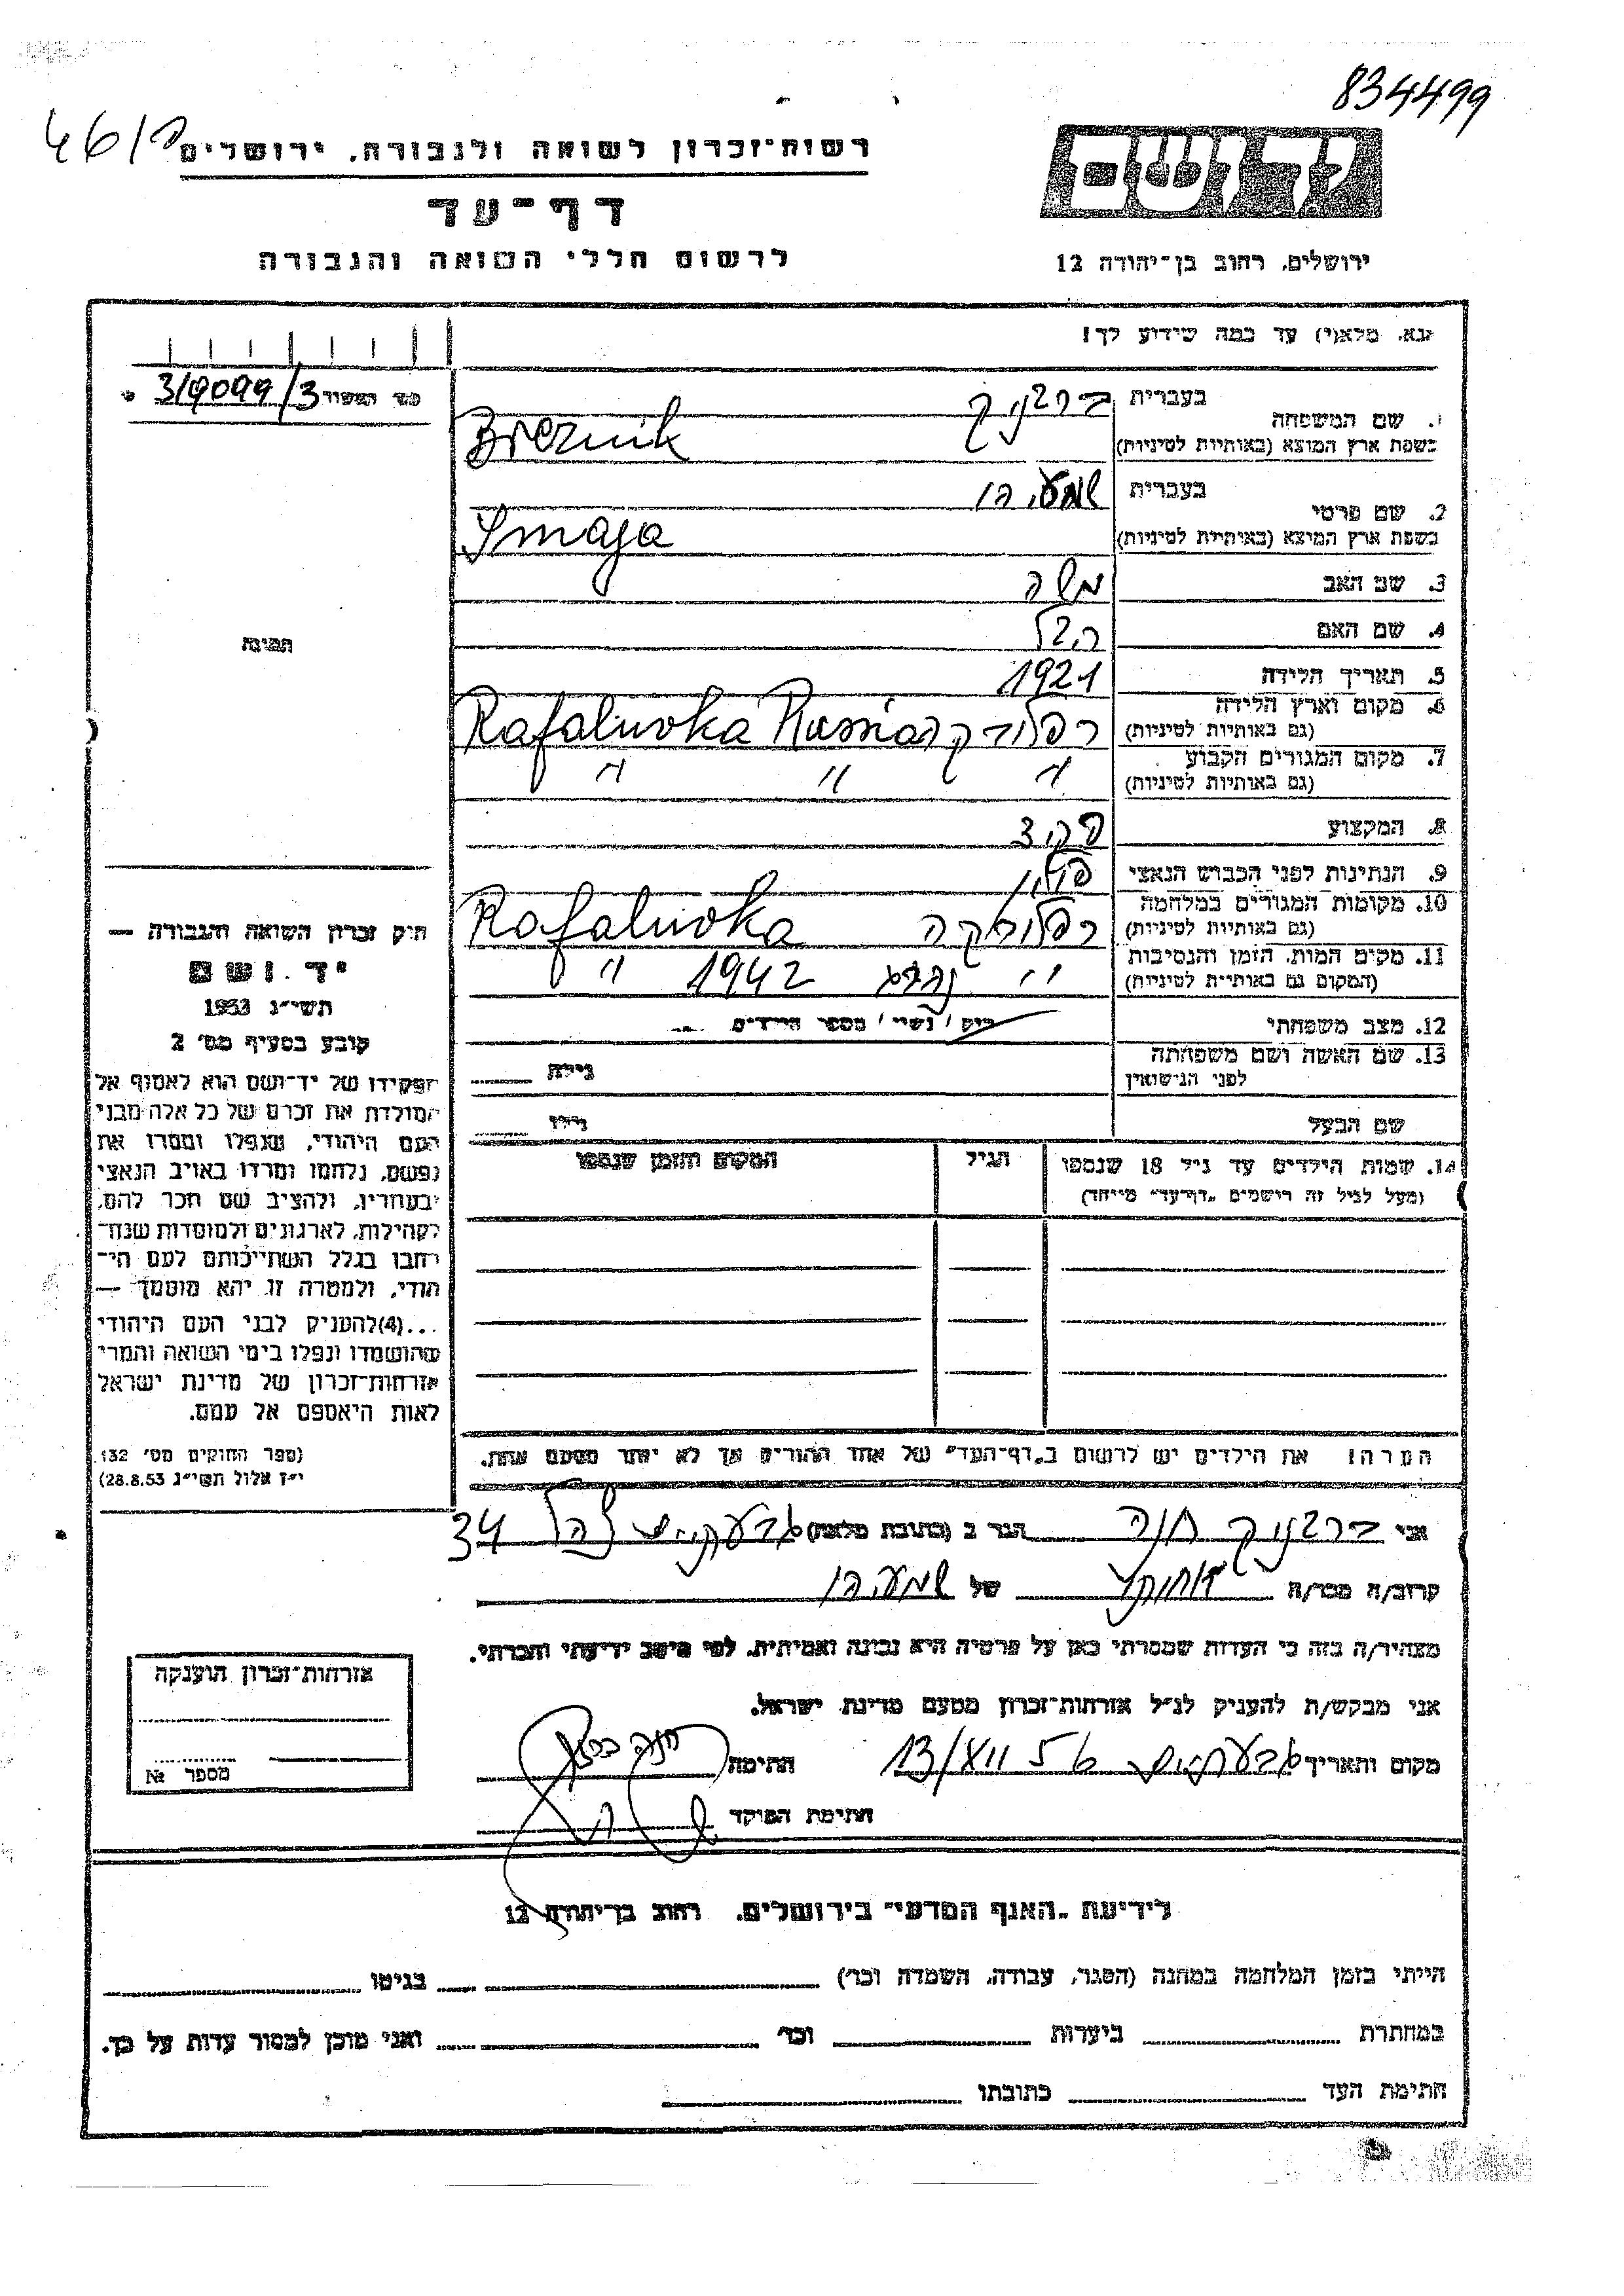 834499
רשות־זכרון לשואה ולגבורה, ירושלים
דף־עד
לרשום חללי השואה והגבורה
יד ושם
ירושלים, רחוב בן־יהודה 12
נא, מלא(י) עד כמה שידוע לך!
3/9099/3
1. שם המשפחה
בעברית
ברזניק
בשפת ארץ המוצא (באותיות לטיניות)
Breznik
2. שם פרטי
בעברית
שמעיהו
בשפת ארץ המוצא (באותיות לטיניות)
Smaja
3. שם האב
משה
4. שם האם
5. תאריך הלידה
1921
6. מקום וארץ הלידה
(גם באותיות לטיניות)
רפלובקה Rafaluvka Rusia
7. מקום המגורים הקבוע
(גם באותיות לטיניות)
" " "
8. המקצוע
פקיד
9. הנתינות לפני הכבוש הנאצי
פולני
10. מקומות המגורים במלחמה
(גם באותיות לטיניות)
רפלובקה Rafaluvka
11. מקום המות, הזמן והנסיבות
(המקום גם באותיות לטיניות)
" 1942 "
12. מצב משפחתי
רוק / נשוי / מספר הילדים
13. שם האשה ושם משפחתה
לפני הנישואין
גילה
שם הבעל
גילו
14. שמות הילדים עד גיל 18 שנספו
(מעל לגיל זה רושמים "דף־עד" מיוחד)
הגיל
המקום והזמן שנספו
הערה: את הילדים יש לרשום ב"דף־העד" של אחד ההורים אך לא יותר מפעם אחת.
תמונה
חוק זכרון השואה והגבורה —
יד ושם
תשי״ג 1953
קובע בסעיף מס׳ 2
תפקידו של יד־ושם הוא לאסוף אל
המולדת את זכרם של כל אלה מבני
העם היהודי, שנפלו ומסרו את
נפשם, נלחמו ומרדו באויב הנאצי
ובעוזריו, ולהציב שם וזכר להם,
לקהילות, לארגונים ולמוסדות שנח־
רבו בגלל השתייכותם לעם הי־
הודי, ולמטרה זו יהא מוסמך —
...(4)להעניק לבני העם היהודי
שהושמדו ונפלו בימי השואה והמרי
אזרחות־זכרון של מדינת ישראל
לאות היאספם אל עמם.
(ספר החוקים מס׳ 132
י״ז אלול תשי״ג 28.8.53)
אני ברזניק חנה הגר ב (כתובת מלאה) 34
קרוב/ה מכר/ה של שמעיהו
מצהיר/ה בזה כי העדות שמסרתי כאן על פרטיה היא נכונה ואמיתית, לפי מיטב ידיעתי והכרתי.
אני מבקש/ת להעניק לנ״ל אזרחות־זכרון מטעם מדינת ישראל.
מקום ותאריך 13/XII 56 חתימה
חתימת הפוקד
אזרחות־זכרון הוענקה
מספר №
לידיעת "האגף המדעי" בירושלים, רחוב בן־יהודה 12
הייתי בזמן המלחמה במחנה (הסגר, עבודה, השמדה וכו׳) בגיטו
במחתרת ביערות וכו׳ ואני מוכן למסור עדות על כך.
חתימת העד כתובתו